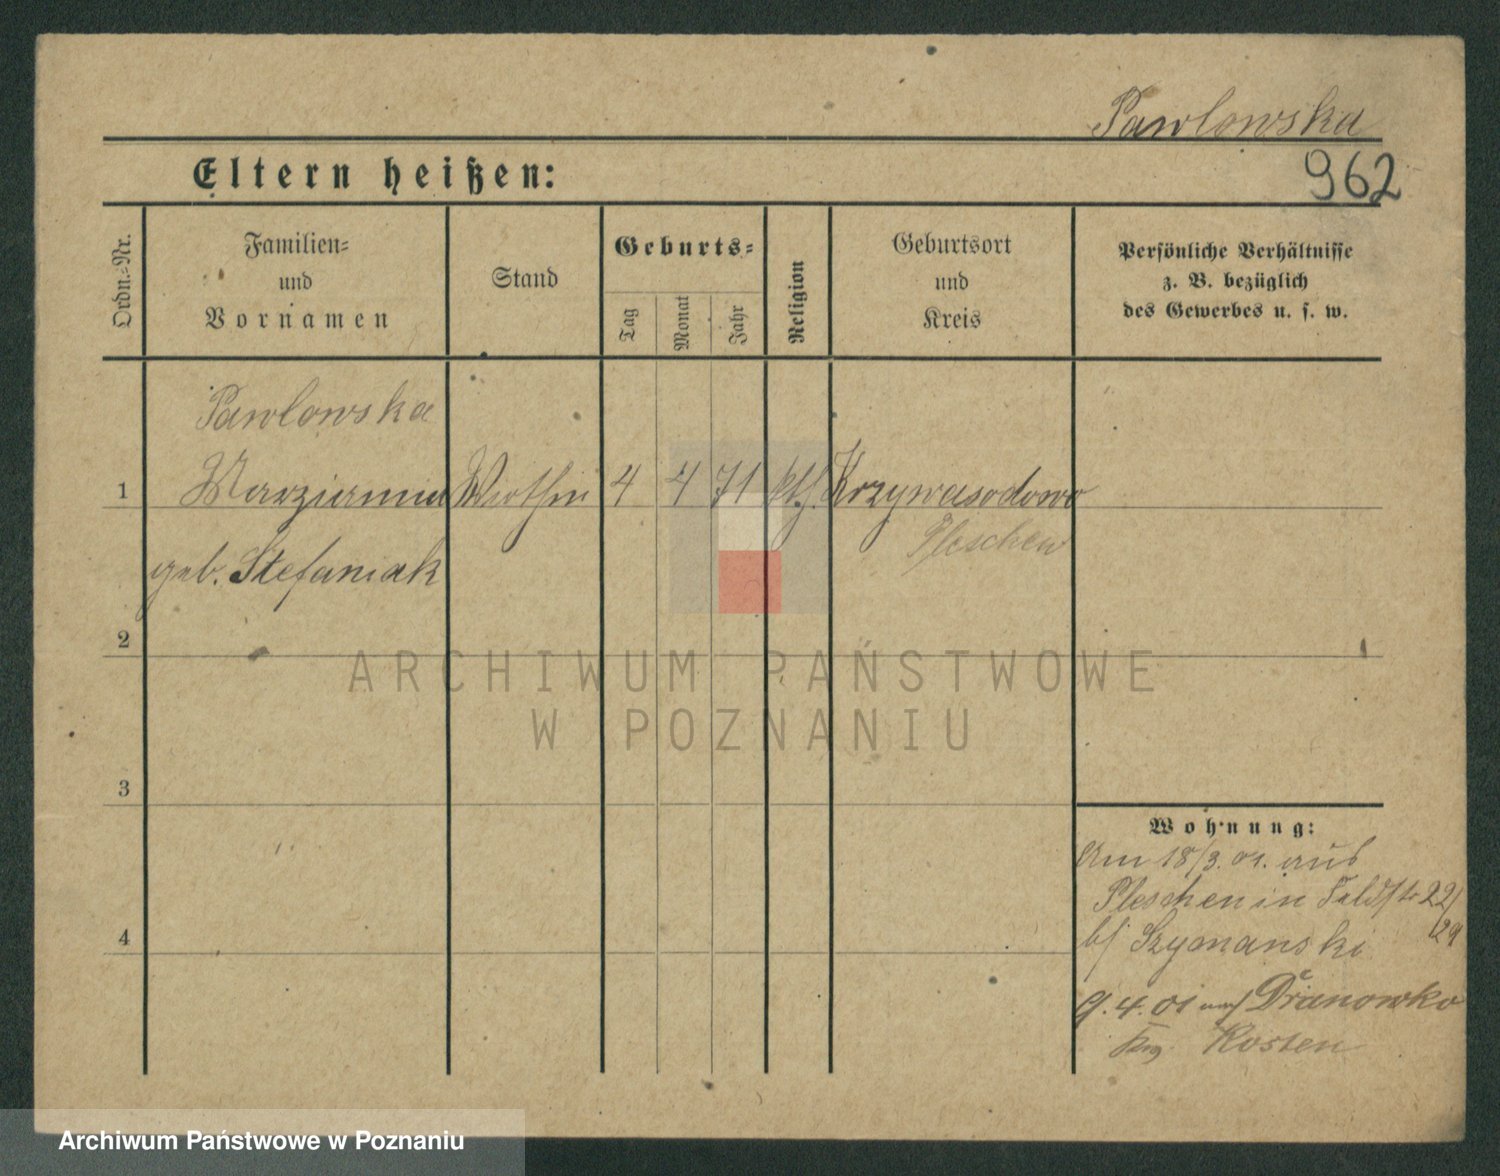 Pawlowska
Eltern heißen:
962
Ordn.-Nr.
Familien-
und
Vornamen
Stand
Geburts-
Tag
Monat
Jahr
Religion
Geburtsort
und
Kreis
Persönliche Verhältnisse
z. B. bezüglich
des Gewerbes u. s. w.
Pawlowska
1 Marzianna Wirthin 4 4 71 kth. Krzywosodowo
Pleschen
geb. Stefaniak
2
3
4
Wohnung:
Am 18/3. 01. aus
Pleschen in Feldstr 22/
29
b/ Szymanski
9. 4. 01 nach
Kosten
ARCHIWUM PAŃSTWOWE
W POZNANIU
Archiwum Państwowe w Poznaniu